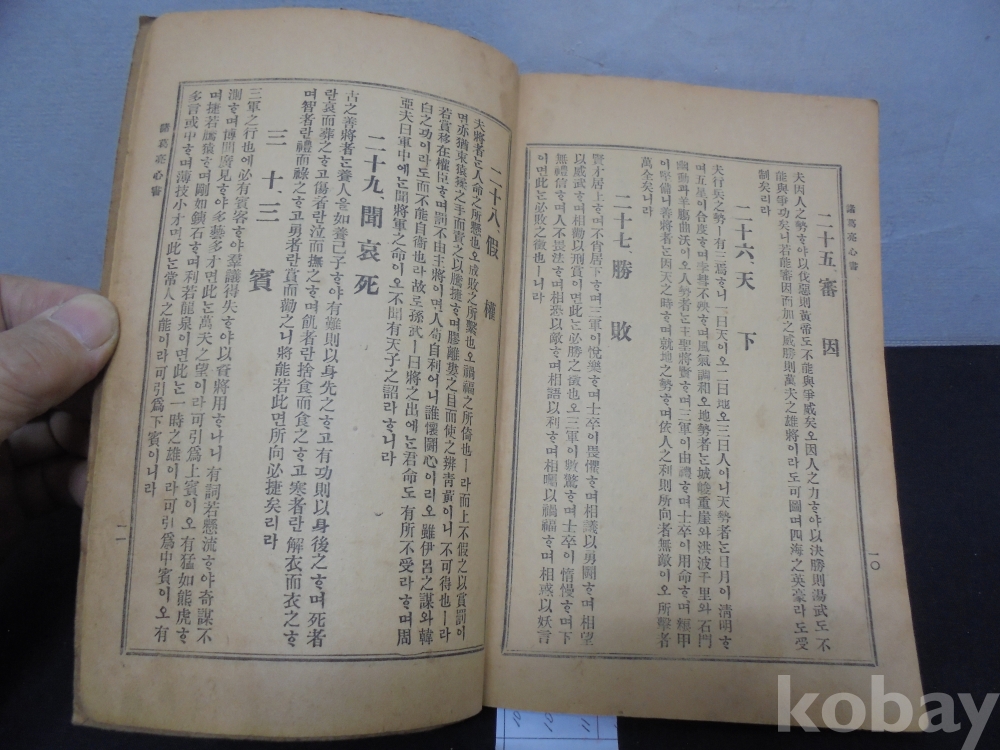 諸葛亮心書
二十五、審 因
夫因人之勢ᄒᆞ야以伐惡則黃帝도不能與爭威矣오因人之力ᄒᆞ야以決勝則湯武도不
能與爭功矣니若能審因而加之威勝則萬夫之雄將이라도可圖며四海之英豪라도受
制矣리라
二十六、天 下
夫行兵之勢ㅣ有三焉ᄒᆞ니一曰天이오二曰地오三曰人이니天勢者ᄂᆞᆫ日月이淸明ᄒᆞ
며五星이合度ᄒᆞ며孛彗不殃ᄒᆞ며風氣調和오地勢者ᄂᆞᆫ城峻重崖와洪波千里와石門
幽洞과羊腸曲沃이오人勢者ᄂᆞᆫ主聖將賢ᄒᆞ며三軍이由禮ᄒᆞ며士卒이用命ᄒᆞ며糧甲
堅備니善將者ᄂᆞᆫ因天之時ᄒᆞ며就地之勢ᄒᆞ며依人之利則所向者無敵이오所擊者
萬全矣니라
二十七、勝 敗
賢才居上ᄒᆞ며不肖居下ᄒᆞ며三軍이悅樂ᄒᆞ며士卒이畏懼ᄒᆞ며相議以勇鬪ᄒᆞ며相望
以威武ᄒᆞ며相勸以刑賞이면此ᄂᆞᆫ必勝之徵也오三軍이數驚ᄒᆞ며士卒이惰慢ᄒᆞ며下
無禮信ᄒᆞ며人不畏法ᄒᆞ며相恐以敵ᄒᆞ며相語以利ᄒᆞ며相囑以禍福ᄒᆞ며相惑以妖言
이면此ᄂᆞᆫ必敗之徵也ㅣ니라
一〇
二十八、假 權
夫將者ᄂᆞᆫ人命之所懸也오成敗之所繫也오禍福之所倚也ㅣ라而上不假之以賞罰이
면亦猶束猿猱之手而責之以騰捷ᄒᆞ며膠離婁之目而使之辨靑黃이니不可得也ㅣ라
若賞移在權臣ᄒᆞ며罰不由主將이면人苟自利어니誰懷鬪心이리오雖伊呂之謀와韓
白之功이라도而不能自衛也라故로孫武ㅣ曰將之出에ᄂᆞᆫ君命도有所不受라ᄒᆞ며周
亞夫曰軍中에ᄂᆞᆫ聞將軍之命이오不聞有天子之詔라ᄒᆞ니라
二十九、聞 哀 死
古之善將者ᄂᆞᆫ養人을如養己子ᄒᆞ야有難則以身先之ᄒᆞ고有功則以身後之ᄒᆞ며死者
란哀而葬之ᄒᆞ고傷者란泣而撫之ᄒᆞ며飢者란捨食而食之ᄒᆞ고寒者란解衣而衣之ᄒᆞ
며智者란禮而祿之ᄒᆞ고勇者란賞而勸之니將能若此면所向必捷矣리라
三 十、三 賓
三軍之行也에必有賓客ᄒᆞ야羣議得失ᄒᆞ야以資將用ᄒᆞ나니有詞若懸流ᄒᆞ야奇謀不
測ᄒᆞ며博聞廣見ᄒᆞ야多藝多才면此ᄂᆞᆫ萬夫之望이라可引爲上賓이오有猛如熊虎ᄒᆞ
며捷若騰猿ᄒᆞ며剛如鐵石ᄒᆞ며利若龍泉이면此ᄂᆞᆫ一時之雄이라可引爲中賓이오有
多言或中ᄒᆞ며薄技小才면此ᄂᆞᆫ常人之能이라可引爲下賓이니라
諸葛亮心書
一一
kobay